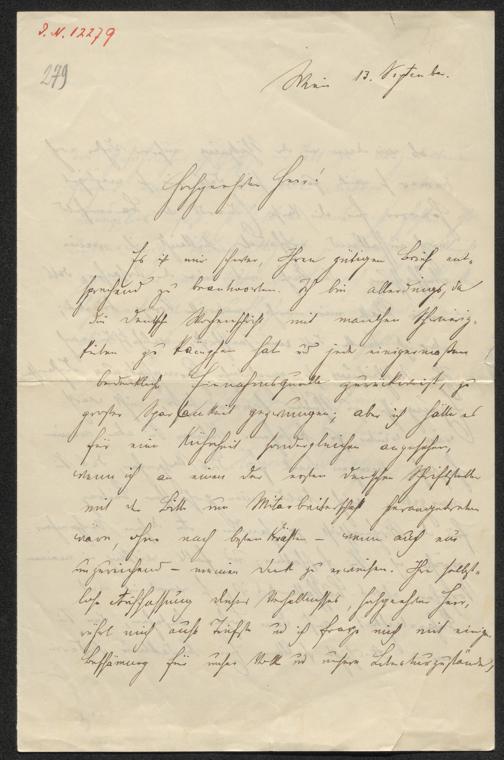 J. N. 12279
279
Wien 13. September.
Hochgeehrter Herr!
Es ist mir schwer, Ihren gütigen Brief ent-
sprechend zu beantworten. Ich bin allerdings, da
die Deutsche Wochenschrift mit manchen Schwierig-
keiten zu kämpfen hat und jede einigermaßen
bedenkliche Einnahmsquelle zurückweist, zu
großer Sparsamkeit gezwungen; aber ich hätte es
für eine Kühnheit sondergleichen angesehen,
wenn ich an einen der ersten deutschen Schriftsteller
mit der Bitte um Mitarbeiterschaft herangetreten
wäre, ohne nach besten Kräften – wenn auch nur
unzureichend – meinen Dank zu erweisen. Ihre selbst-
lose Auffassung dieses Verhältnisses, hochgeehrter Herr,
rührt mich aufs Tiefste und ich frage mich mit einiger
Beschämung für unser Volk und unsere Literaturzustände,